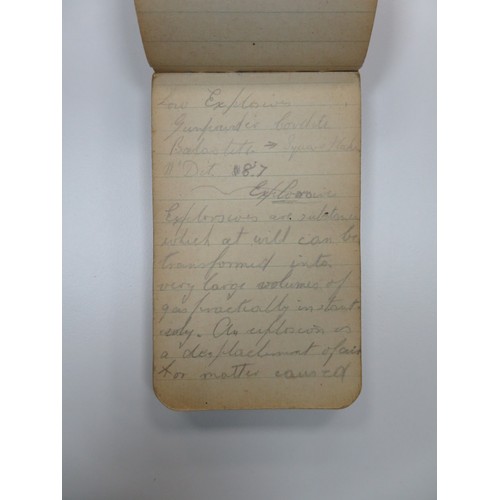 Low Explosives
Gunpowder Cordite
Balastite
N° Det N8.7
Explosives
Explosives are substances
which at will can be
transformed into
very large volumes of
gas practically instant
isly. An explosion is
a displacement of air
x or matter caused